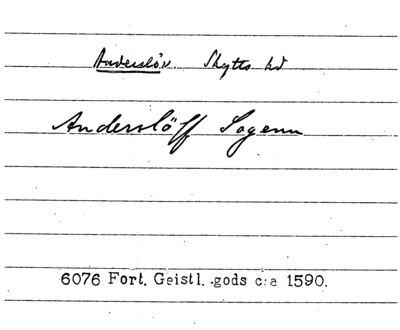 Anderslöv. Skytts hd
Anderslöff Sogenn
6076 Fort. Geistl. gods c:a 1590.